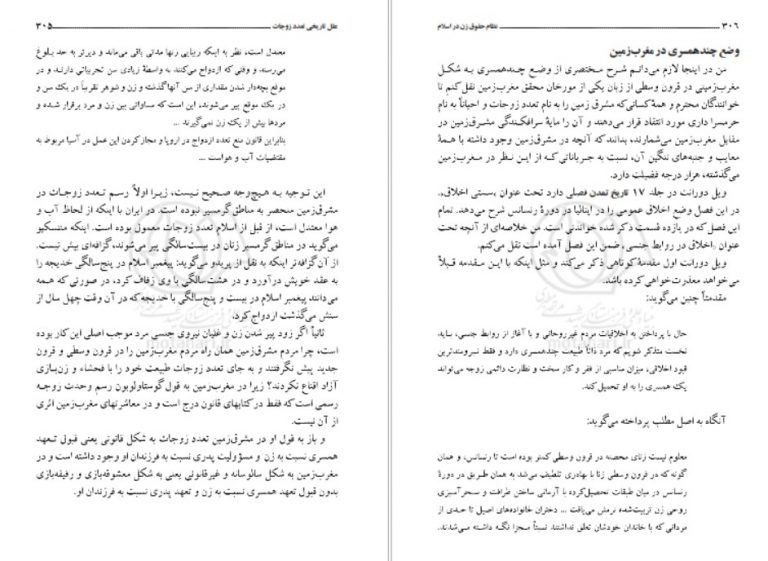 علل تاریخی تعدد زوجات ۳۰۵
معتدل است، نظر به اینکه زیبایی زنها مدتی باقی می‌ماند و دیرتر به حد بلوغ
می‌رسند و وقتی که ازدواج می‌کنند به واسطهٔ زیادی سن تجربیاتی دارند، و در
موقع بچه‌دار شدن مقداری از سن آنها گذشته و زن و شوهر تقریباً در یک سن و
در یک موقع پیر می‌شوند، این است که مساواتی بین زن و مرد برقرار شده و
مردها بیش از یک زن نمی‌گیرند ...
بنابراین قانون منع تعدد ازدواج در اروپا و مجاز کردن این عمل در آسیا مربوط به
مقتضیات آب و هواست ...
این توجیه به هیچ‌وجه صحیح نیست، زیرا اولاً رسم تعدد زوجات در
مشرق‌زمین منحصر به مناطق گرمسیر نبوده است. در ایران با اینکه از لحاظ آب و
هوا معتدل است، از قبل از اسلام تعدد زوجات معمول بوده است. اینکه منتسکیو
می‌گوید در مناطق گرمسیر زنان در بیست‌سالگی پیر می‌شوند، گزافه‌ای بیش نیست.
از آن گزافه‌تر اینکه به نقل از پریدو می‌گوید: پیغمبر اسلام در پنج‌سالگی خدیجه را
به عقد خویش درآورد و در هشت‌سالگی با وی زفاف کرد، در صورتی که همه
می‌دانند پیغمبر اسلام در بیست و پنج‌سالگی با خدیجه که در آن وقت چهل سال از
سنش می‌گذشت ازدواج کرد.
ثانیاً اگر زود پیر شدن زن و غلیان نیروی جنسی مرد موجب اصلی این کار بوده
است، چرا مردم مشرق‌زمین همان راه مردم مغرب‌زمین را در قرون وسطی و قرون
جدید پیش نگرفتند و به جای تعدد زوجات طبیعت خود را با فحشاء و زن‌بازی
آزاد اقناع نکردند؟ زیرا در مغرب‌زمین به قول گوستاولوبون رسم وحدت زوجه
رسمی است که فقط در کتابهای قانون درج است و در معاشرتهای مغرب‌زمین اثری
از آن نیست.
و باز به قول او در مشرق‌زمین تعدد زوجات به شکل قانونی یعنی قبول تعهد
همسری نسبت به زن و مسؤولیت پدری نسبت به فرزندان او وجود داشته است و در
مغرب‌زمین به شکل سالوسانه و غیرقانونی یعنی به شکل معشوقه‌بازی و رفیقه‌بازی
بدون قبول تعهد همسری نسبت به زن و تعهد پدری نسبت به فرزندان او.
۳۰۶ نظام حقوق زن در اسلام
وضع چندهمسری در مغرب‌زمین
من در اینجا لازم می‌دانم شرح مختصری از وضع چندهمسری به شکل
مغرب‌زمینی در قرون وسطی از زبان یکی از مورخان محقق مغرب‌زمین نقل کنم تا
خوانندگان محترم و همهٔ کسانی که مشرق زمین را به نام تعدد زوجات و احیاناً به نام
حرمسرا داری مورد انتقاد قرار می‌دهند و آن را مایهٔ سرافکندگی مشرق‌زمین در
مقابل مغرب‌زمین می‌شمارند، بدانند که آنچه در مشرق‌زمین وجود داشته با همهٔ
معایب و جنبه‌های ننگین آن، نسبت به جریاناتی که از این نظر در مغرب‌زمین
می‌گذشته، هزار درجه فضیلت دارد.
ویل دورانت در جلد ۱۷ تاریخ تمدن فصلی دارد تحت عنوان «سستی اخلاق».
در این فصل وضع اخلاق عمومی را در ایتالیا در دورهٔ رنسانس شرح می‌دهد. تمام
این فصل که در یازده قسمت ذکر شده خواندنی است. من خلاصه‌ای از آنچه تحت
عنوان «اخلاق در روابط جنسی» ضمن این فصل آمده است نقل می‌کنم.
ویل دورانت اول مقدمهٔ کوتاهی ذکر می‌کند و مثل اینکه با این مقدمه قبلاً
می‌خواهد معذرت‌خواهی کرده باشد.
مقدمتاً چنین می‌گوید:
حال با پرداختن به اخلاقیات مردم غیرروحانی و با آغاز از روابط جنسی، باید
نخست متذکر شویم که مرد ذاتاً طبیعت چندهمسری دارد و فقط نیرومندترین
قیود اخلاقی، میزان مناسبی از فقر و کار سخت و نظارت دائمی زوجه می‌تواند
یک همسری را به او تحمیل کند.
آنگاه به اصل مطلب پرداخته می‌گوید:
معلوم نیست زنای محصنه در قرون وسطی کمتر بوده است تا رنسانس، و همان
گونه که در قرون وسطی زنا با بهادری تلطیف می‌شد به همان طریق در دورهٔ
رنسانس در میان طبقات تحصیل‌کرده با آرمانی ساختن ظرافت و سحرآمیزی
روحی زن تربیت‌شده نرمش می‌یافت ... دختران خانواده‌های اصیل تا حدی از
مردانی که با خاندان خودشان تعلق نداشتند، نسبتاً مجزا نگه داشته می‌شدند.
motahari.ir